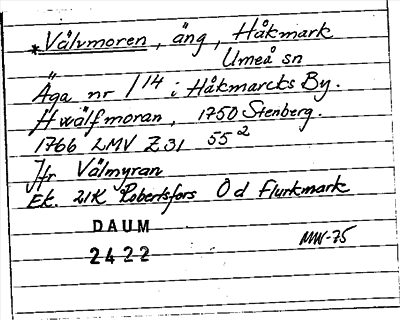 *Välvmoren, äng, Håkmark
Umeå sn
Äga nr 114 i Håkmarcks By.
Hwälfmoran, 1750 Stenberg.
1766 LMV Z31 55²
Jfr Välmyran
Ek. 21K Robertsfors 0 d Flurkmark
DAUM
2422
MW-75